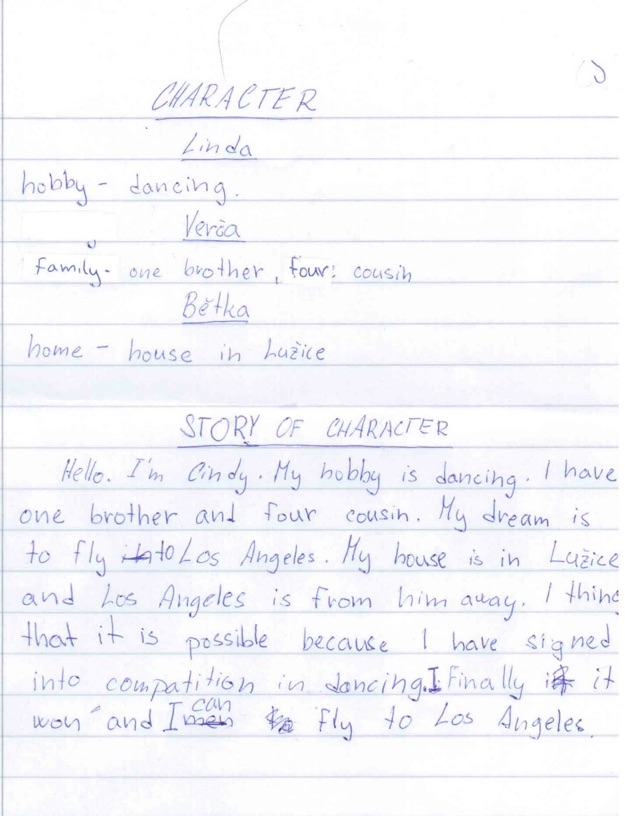 CHARACTER
Linda
hobby - dancing.
Verča
Family - one brother, four cousin
Bětka
home - house in Lužice
STORY OF CHARACTER
Hello. I'm Cindy. My hobby is dancing. I have
one brother and four cousin. My dream is
to fly to Los Angeles. My house is in Lužice
and Los Angeles is from him away. I thing
that it is possible because I have signed
into compatition in dancing. I Finally it
won and I can fly to Los Angeles.